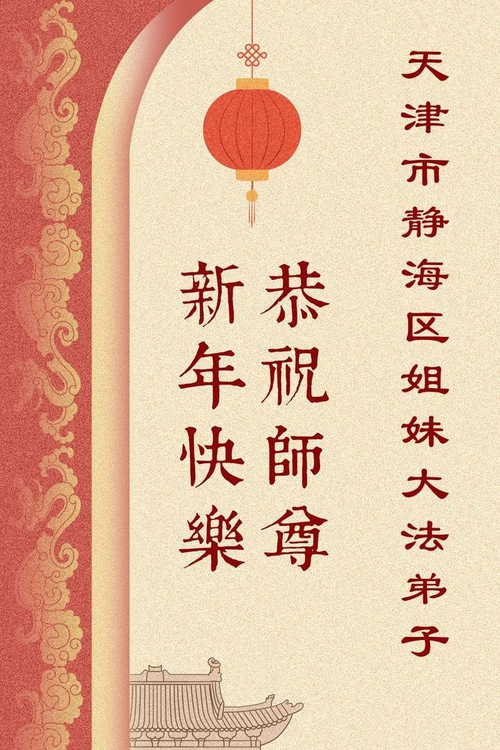 天津市静海区姐妹大法弟子
恭祝師尊
新年快樂